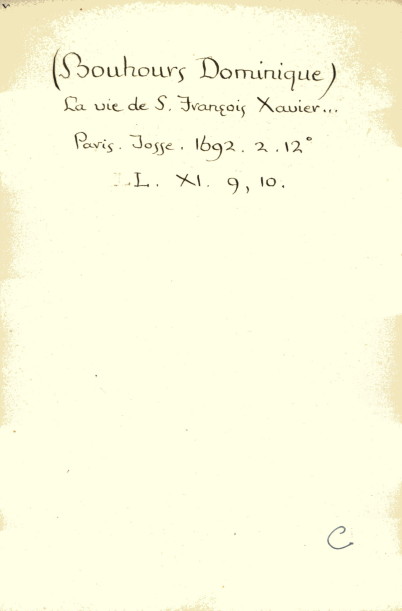 (Bouhours Dominique)
La vie de S. François Xavier...
Paris. Josse. 1692. 2. 12°
LL. XI. 9, 10.
C